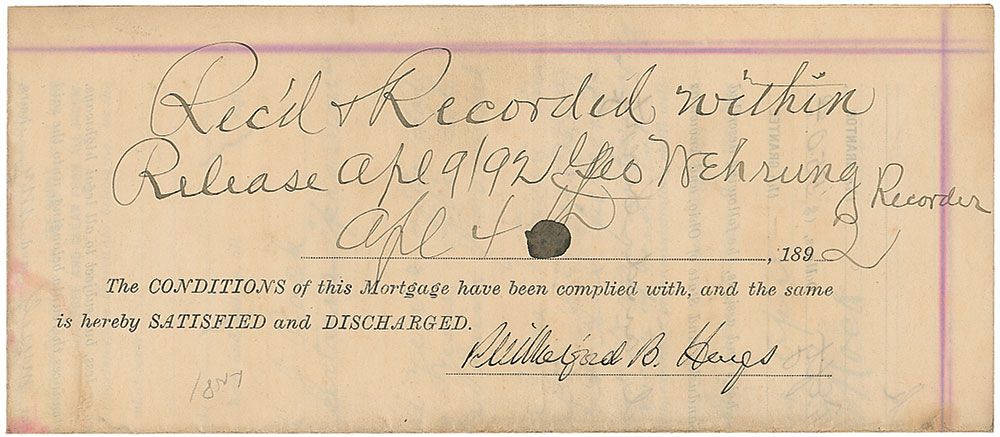 Rec'd & Recorded within
Release Apl 9/92 Geo W Ehrung Recorder
Apl 4 , 1892
The CONDITIONS of this Mortgage have been complied with, and the same
is hereby SATISFIED and DISCHARGED.
B. Hayes